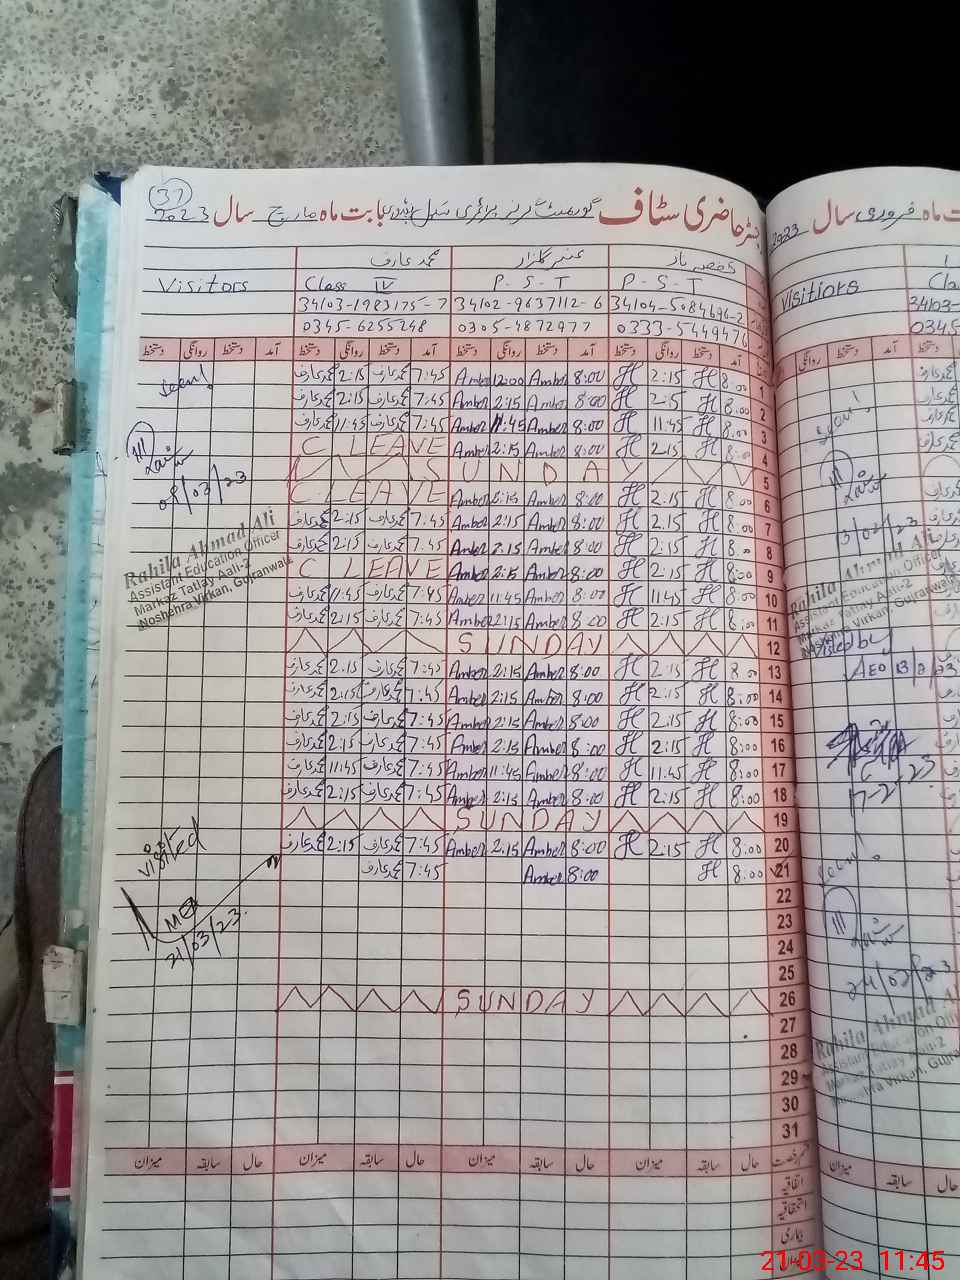 37
رجسٹر حاضری سٹاف گورنمنٹ گرلز پرائمری سکول بابت ماہ مارچ سال 2023
ناز عنبر گلزار محمد عارف
P-S-T P-S-T Class IV Visitors
34104-5084696-2 34102-9637112-6 34103-1983175-7
0333-5449476 0305-4872977 0345-6255248
آمد دستخط روانگی دستخط آمد دستخط روانگی دستخط آمد دستخط روانگی دستخط آمد دستخط روانگی دستخط
1 8:00 H 2:15 H 8:00 Amber 12:00 Amber 7:45 محمد عارف 2:15 محمد عارف Seen!
2 8:00 H 2:15 H 8:00 Amber 2:15 Amber 7:45 محمد عارف 2:15 محمد عارف
3 8:00 H 11:45 H 8:00 Amber 11:45 Amber 7:45 محمد عارف 11:45 محمد عارف
4 8:00 H 2:15 H 8:00 Amber 2:15 Amber C LEAVE
5 SUNDAY
6 8:00 H 2:15 H 8:00 Amber 2:15 Amber C LEAVE 08/03/23
7 8:00 H 2:15 H 8:00 Amber 2:15 Amber 7:45 محمد عارف 2:15 محمد عارف
8 8:00 H 2:15 H 8:00 Amber 2:15 Amber 7:45 محمد عارف 2:15 محمد عارف
9 8:00 H 2:15 H 8:00 Amber 2:15 Amber C LEAVE
10 8:00 H 11:45 H 8:00 Amber 11:45 Amber 7:45 محمد عارف 11:45 محمد عارف
11 8:00 H 2:15 H 8:00 Amber 2:15 Amber 7:45 محمد عارف 2:15 محمد عارف
Rahila Ahmad Ali
Assistant Education Officer
Markaz Tatlay Aali-2
Noshehra Virkan, Gujranwala
12 SUNDAY
13 8:00 H 2:15 H 8:00 Amber 2:15 Amber 7:45 محمد عارف 2:15 محمد عارف
14 8:00 H 2:15 H 8:00 Amber 2:15 Amber 7:45 محمد عارف 2:15 محمد عارف
15 8:00 H 2:15 H 8:00 Amber 2:15 Amber 7:45 محمد عارف 2:15 محمد عارف
16 8:00 H 2:15 H 8:00 Amber 2:15 Amber 7:45 محمد عارف 2:15 محمد عارف
17 8:00 H 11:45 H 8:00 Amber 11:45 Amber 7:45 محمد عارف 11:45 محمد عارف
18 8:00 H 2:15 H 8:00 Amber 2:15 Amber 7:45 محمد عارف 2:15 محمد عارف
19 SUNDAY
20 8:00 H 2:15 H 8:00 Amber 2:15 Amber 7:45 محمد عارف 2:15 محمد عارف
21 8:00 H 8:00 Amber 7:45 محمد عارف
visited
21/03/23
22
23
24
25
26 SUNDAY
27
28
29
30
31
حال سابقہ میزان حال سابقہ میزان حال سابقہ میزان حال سابقہ میزان
اتفاقیہ
استحقاقیہ
بیماری
ماہ فروری سال 2023
Visitiors
34103-
0345
روانگی دستخط
Seen!
13/02/23
Rahila Ahmad Ali
Assistant Education Officer
Markaz Tatlay Aali-2
Noshehra Virkan, Gujranwala
Visted by
AEO 13/2/23
17-2-23
Seen!
24/02/23
Rahila Ahmad Al
Assistant Education Offic
Markaz Tatlay Aali-2
Noshehra Virkan, Gujranw
حال سابقہ میزان
21-03-23 11:45